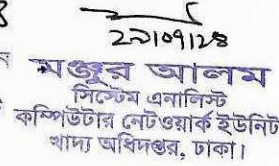 ২১/০৭/২৪
মঞ্জুর আলম
সিস্টেম এনালিস্ট
কম্পিউটার নেটওয়ার্ক ইউনিট
খাদ্য অধিদপ্তর, ঢাকা।